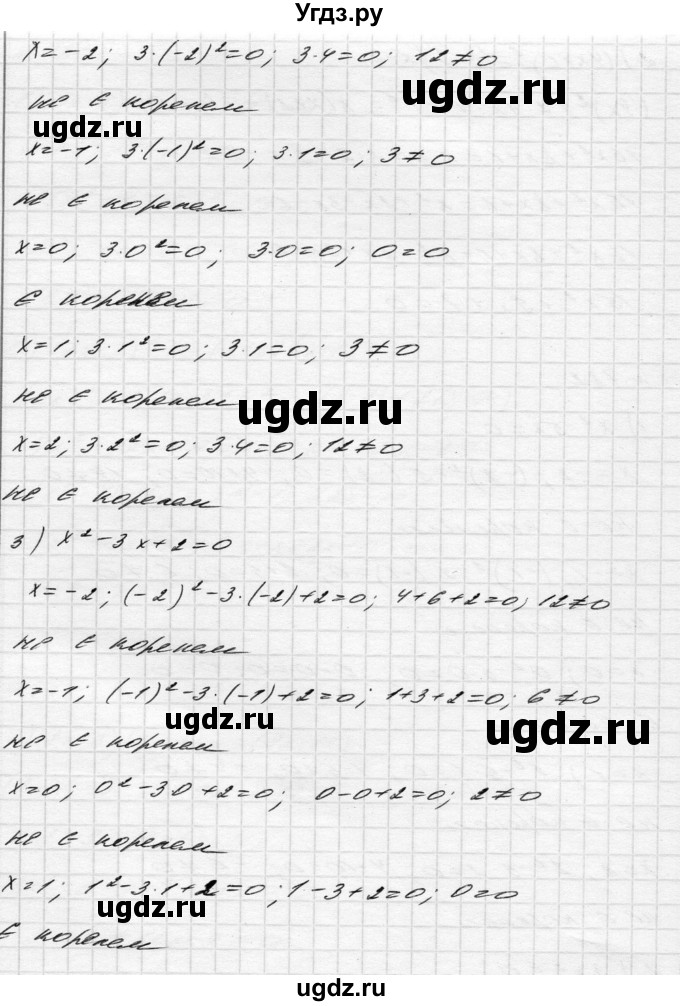 Угдз.ру
x=-2; 3·(-2)²=0; 3·4=0; 12≠0
ugdz.ru
не є коренем
ugdz.ru
x=-1; 3·(-1)²=0; 3·1=0; 3≠0
не є коренем
x=0; 3·0²=0; 3·0=0; 0=0
є коренем
ugdz.ru
x=1; 3·1²=0; 3·1=0; 3≠0
не є коренем
ugdz.ru
x=2; 3·2²=0; 3·4=0; 12≠0
не є коренем
ugdz.ru
3) x²-3x+2=0
x=-2; (-2)²-3·(-2)+2=0; 4+6+2=0; 12≠0
не є коренем
x=-1; (-1)²-3·(-1)+2=0; 1+3+2=0; 6≠0
ugdz.ru
ugdz.ru
не є коренем
x=0; 0²-3·0+2=0; 0-0+2=0; 2≠0
не є коренем
x=1; 1²-3·1+2=0; 1-3+2=0; 0=0
ugdz.ru
є коренем
ugdz.ru